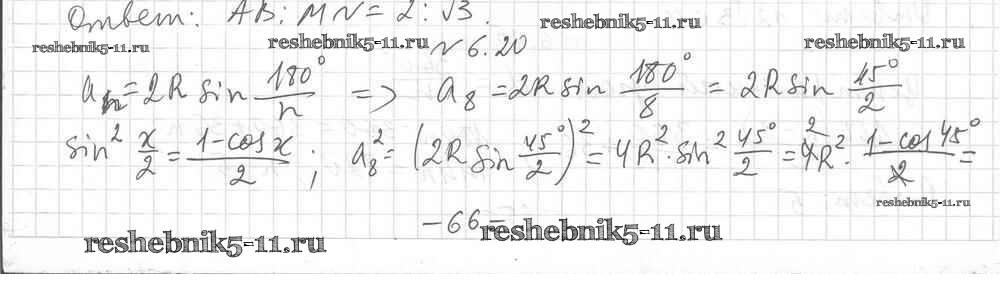 Ответ: AB : MN = 2 : √3.
reshebnik5-11.ru
reshebnik5-11.ru
reshebnik5-11.ru
N 6.20
reshebnik5-11.ru
aₙ = 2R sin 180°/n => a₈ = 2R sin 180°/8 = 2R sin 45°/2
sin² x/2 = (1-cos x)/2 ; a₈² = (2R sin 45°/2)² = 4R² · sin² 45°/2 = 4̸² R² · (1-cos 45°)/2̸ =
reshebnik5-11.ru
-66-
reshebnik5-11.ru
reshebnik5-11.ru